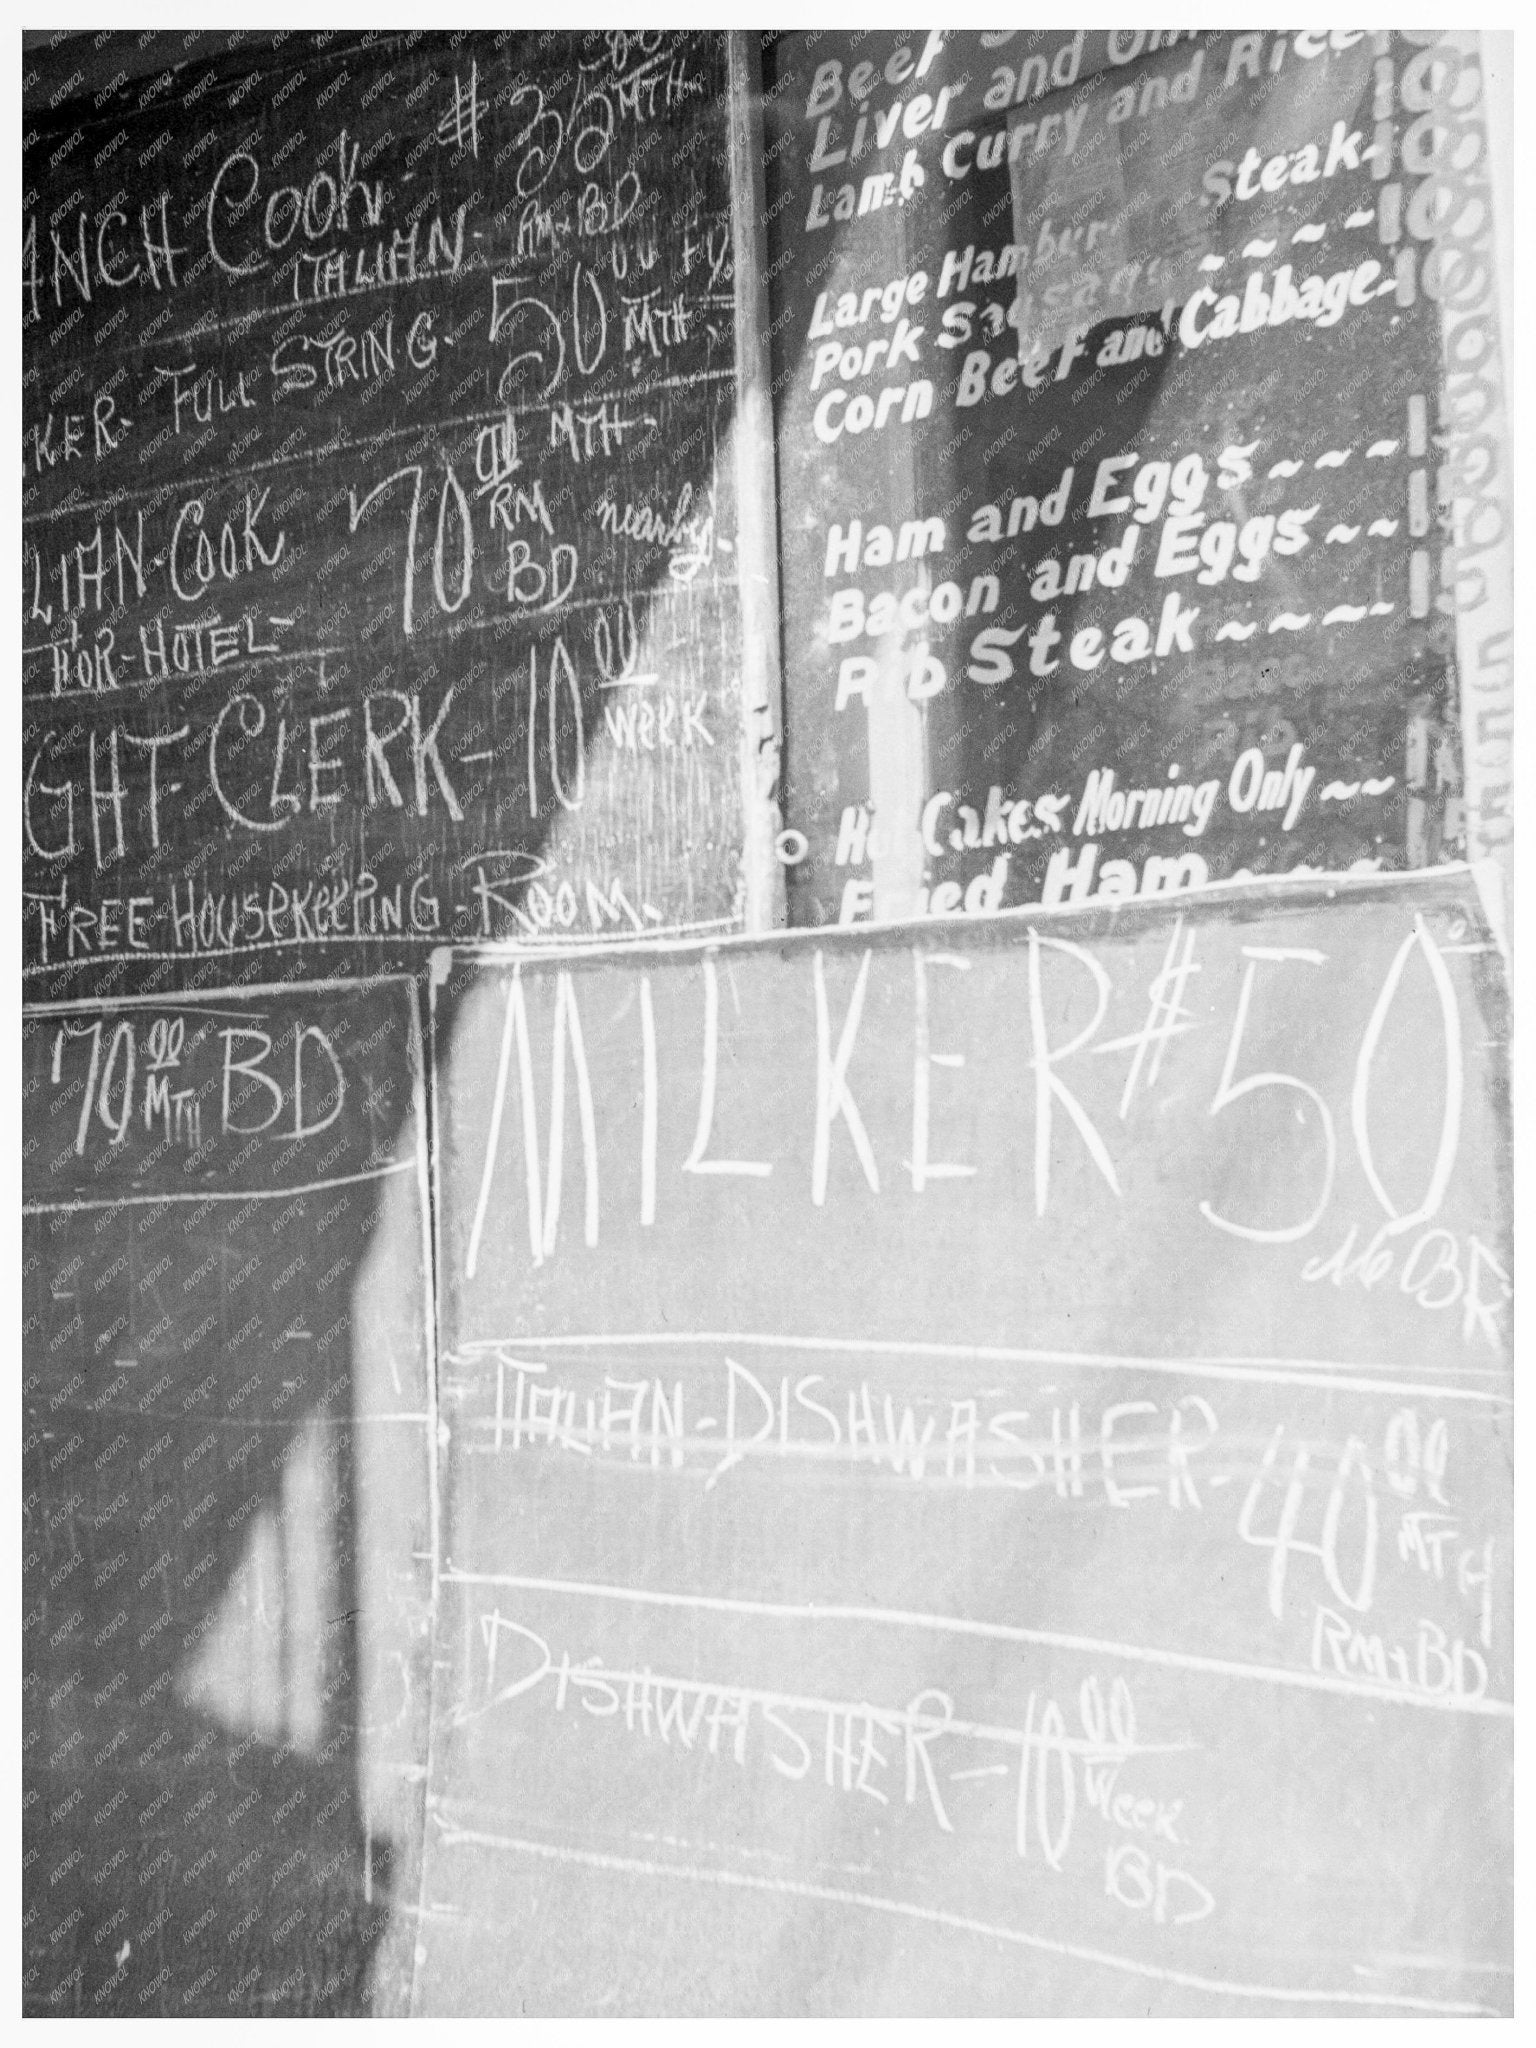 $35 00 MTH
ANCH Cook - RM+BD
ITALIAN -
KER - FULL STRING. 50 00 MTH.
LIAN - COOK 70 00 MTH -
RM BD nearby -
FOR - HOTEL -
GHT CLERK - 10 00 week
FREE HOUSEKEEPING - ROOM.
70 00 MTH BD
Beef
Liver and
Lamb Curry and Rice
Steak
Large Hambur
Pork
Corn Beef and Cabbage
Ham and Eggs ~ ~ ~
Bacon and Eggs ~ ~
Rib Steak ~ ~ ~ ~
Cakes Morning Only ~ ~
Fried Ham ~ ~ ~
MILKER $50
No BR
ITALIAN - DISHWASHER - 40 00 MTH
RM+BD
DISHWASHER - 10 00 Week
BD
KNOWOL